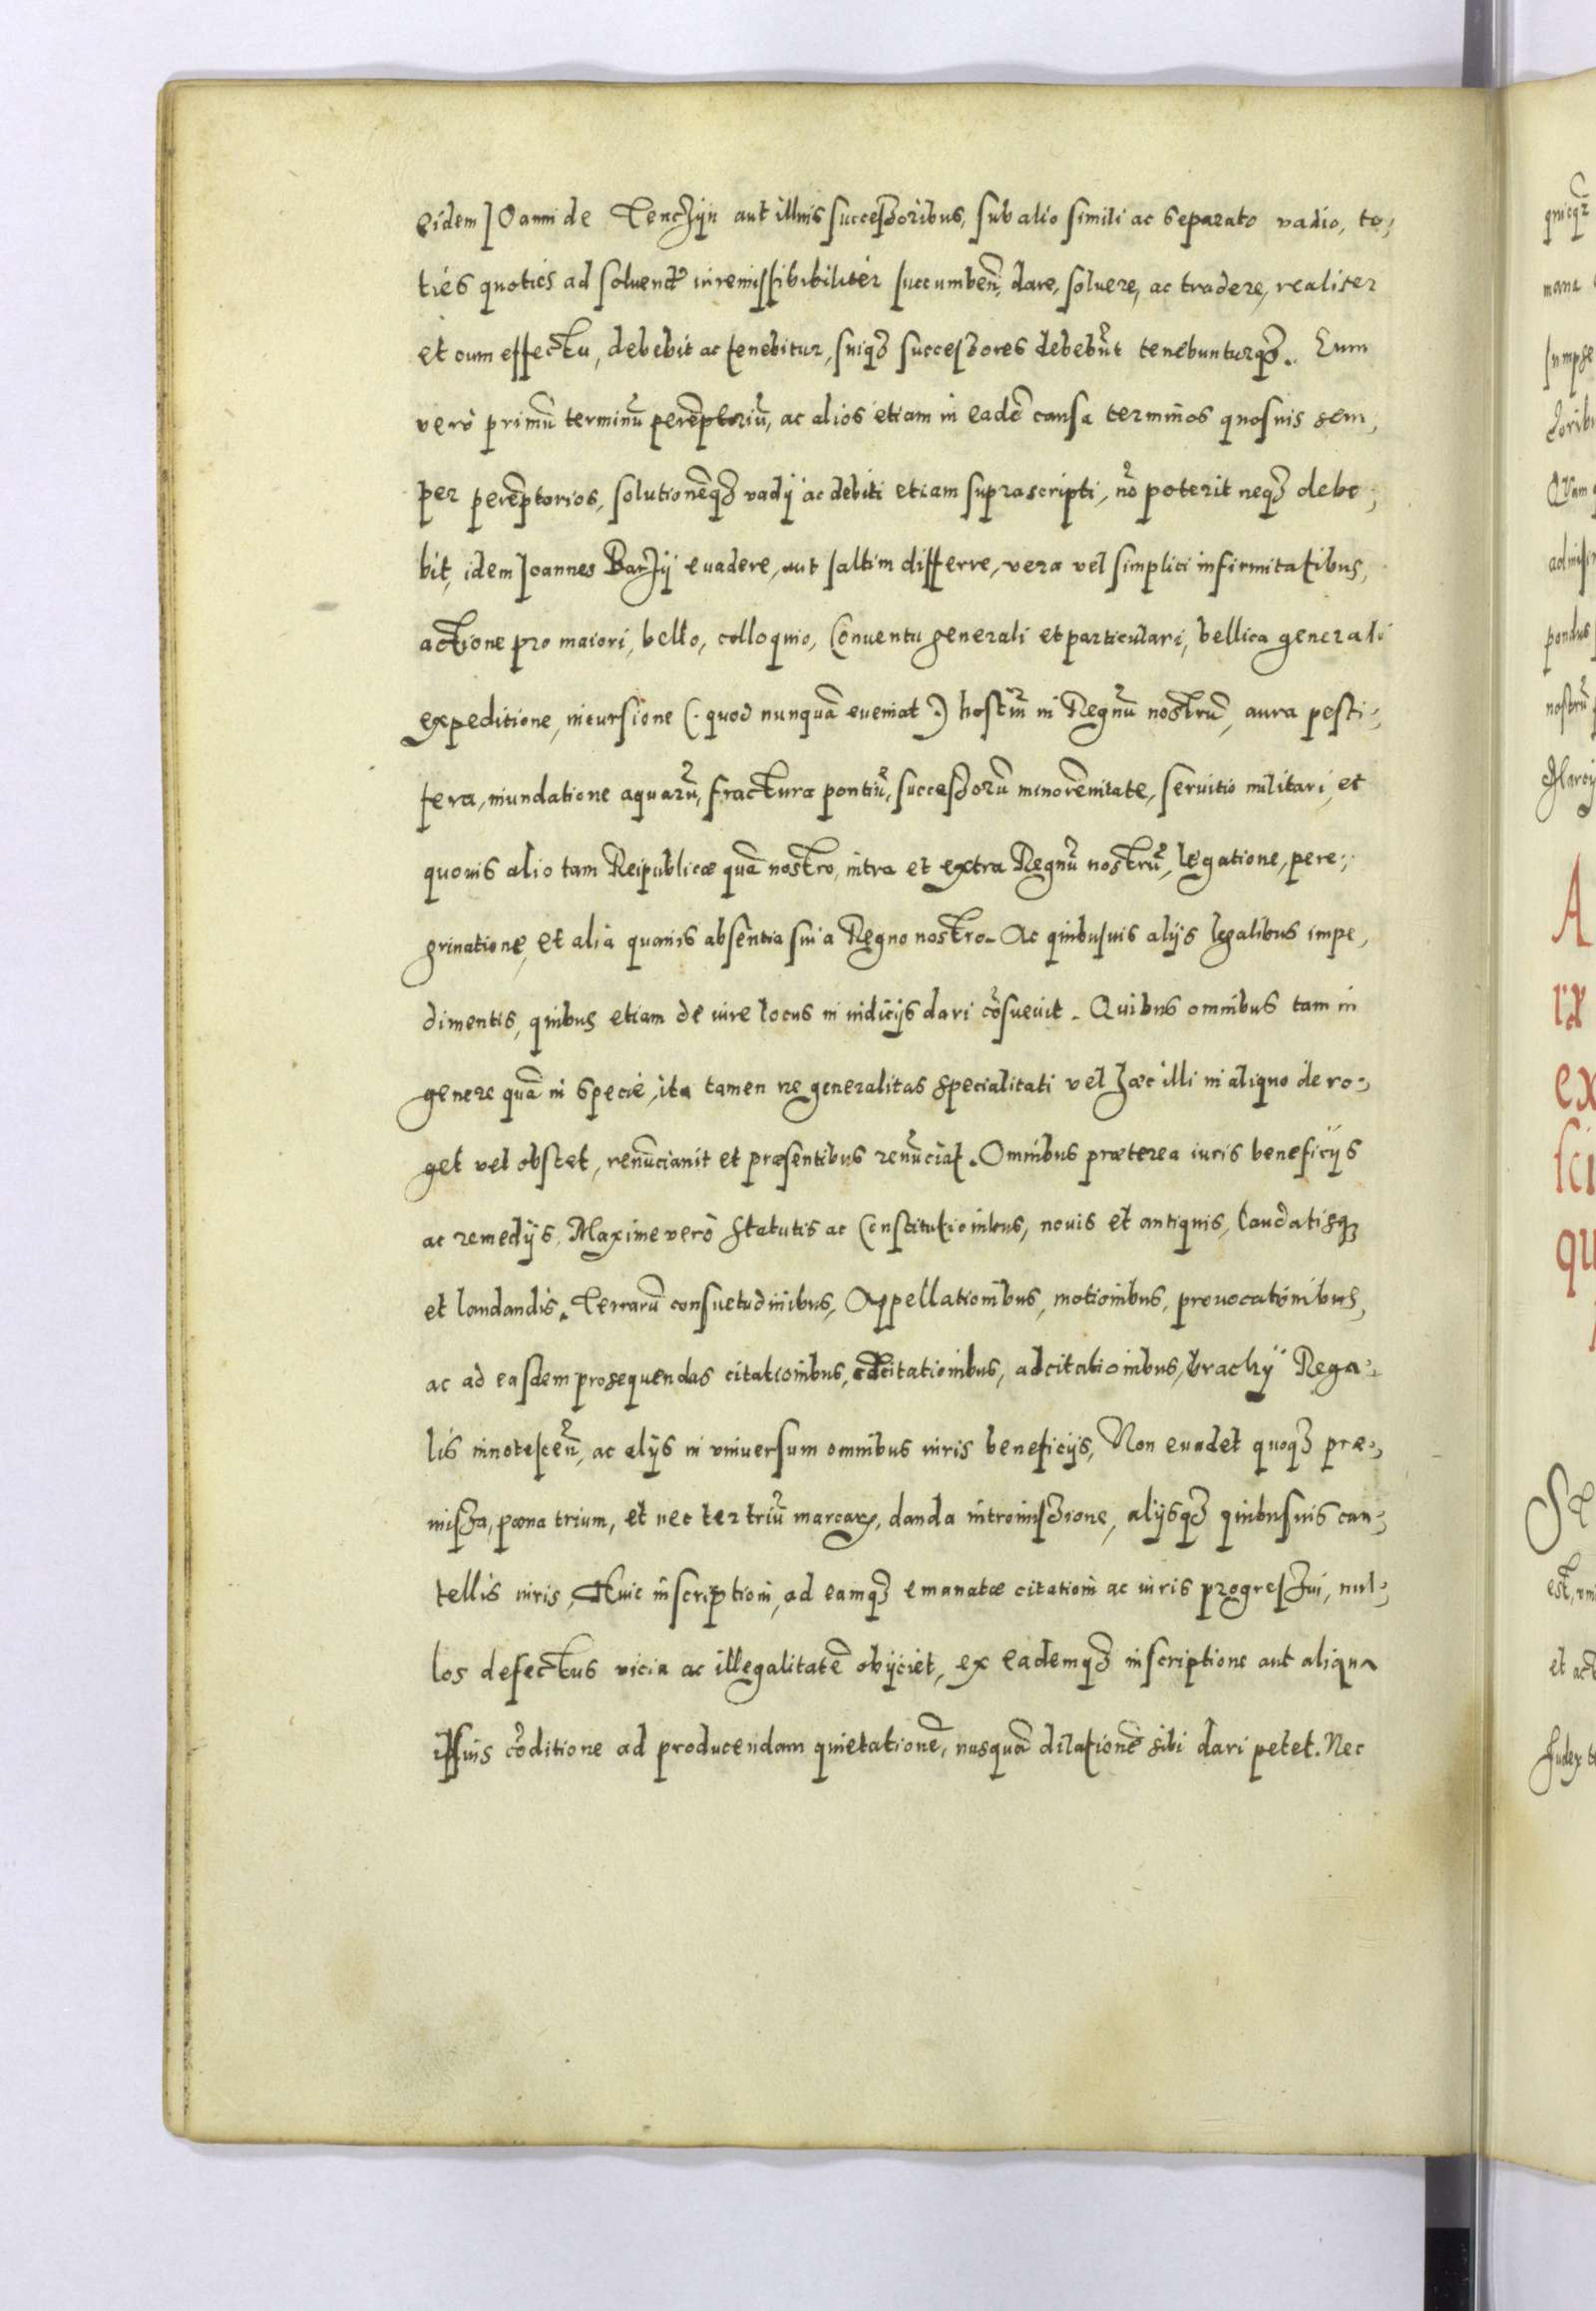 eidem Joanni de Tenczÿn aut illius succeſsoribus, sub alio simili ac separato vadio, to,
tiés quoties ad soluend' irremiſsibibiliter succumben̄, dare, soluere, ac tradere, realiter
et cum effectu, debebit ac tenebitur, suiq₃ succeſsores debebūt tenebunturq₃. Eum
verò primū terminū perēptoriū, ac alios etiam in eadē causa terminos quosuis sem,
per perēptorios, solutionēq₃ vadÿ ac debiti etiam suprascripti, nō poterit neq₃ debe,
bit, idem Joannes Barzÿ euadere, aut saltim differre, vera vel simplici infirmitatibus,
actione pro maiori, bello, colloquio, Conuentu generali et particulari, bellica generali
expeditione, incursione (. quod nunquā eueniat .) hostiū in Regnū nostrū, aura pesti:,
fera, inundatione aquarū, fractura pontiū, succeſsorū minorēnitate, seruitio militari, et
quouis alio tam Reipublicæ quā nostro, intra et extra Regnū nostrū, legatione, pere:,
grinatione, et alia quauis absentia sui a Regno nostro. Ac quibusuis alÿs legalibus impe,
dimentis, quibus etiam de iure locus in iudicÿs dari cōsueuit. Quibus omnibus tam in
genere quā in specie, ita tamen ne generalitas specialitati vel hæc illi in aliquo dero:,
get vel obstet, renūciauit et præsentibus renūciat. Omnibus præterea iuris beneficÿs
ac remedÿs, Maxime verò statutis ac Constitutionibus, nouis et antiquis, laudatisq₃
et laudandis. Terrarū consuetudinibus, Appellationibus, motionibus, prouocationibus,
ac ad easdem prosequendas citationibus, citationibus, adcitationibus, brachÿ Rega:,
lis innotescen̄, ac alÿs in vniuersum omnibus iuris beneficÿs, Non euadet quoq₃ præ:,
miſsa, pœna trium, et nec ter triū marcarꝝ, danda intromiſsione, alÿsq₃ quibusuis cau:,
tellis iuris, Huic inscriptioni, ad eamq₃ emanatæ citationi ac iuris progreſsui, nul:,
los defectus vicia ac illegalitatē obÿciet, ex eademq₃ inscriptione aut aliqua
ipsius cōditione ad producendam quietationē, nusquā dilationē sibi dari petet. Nec